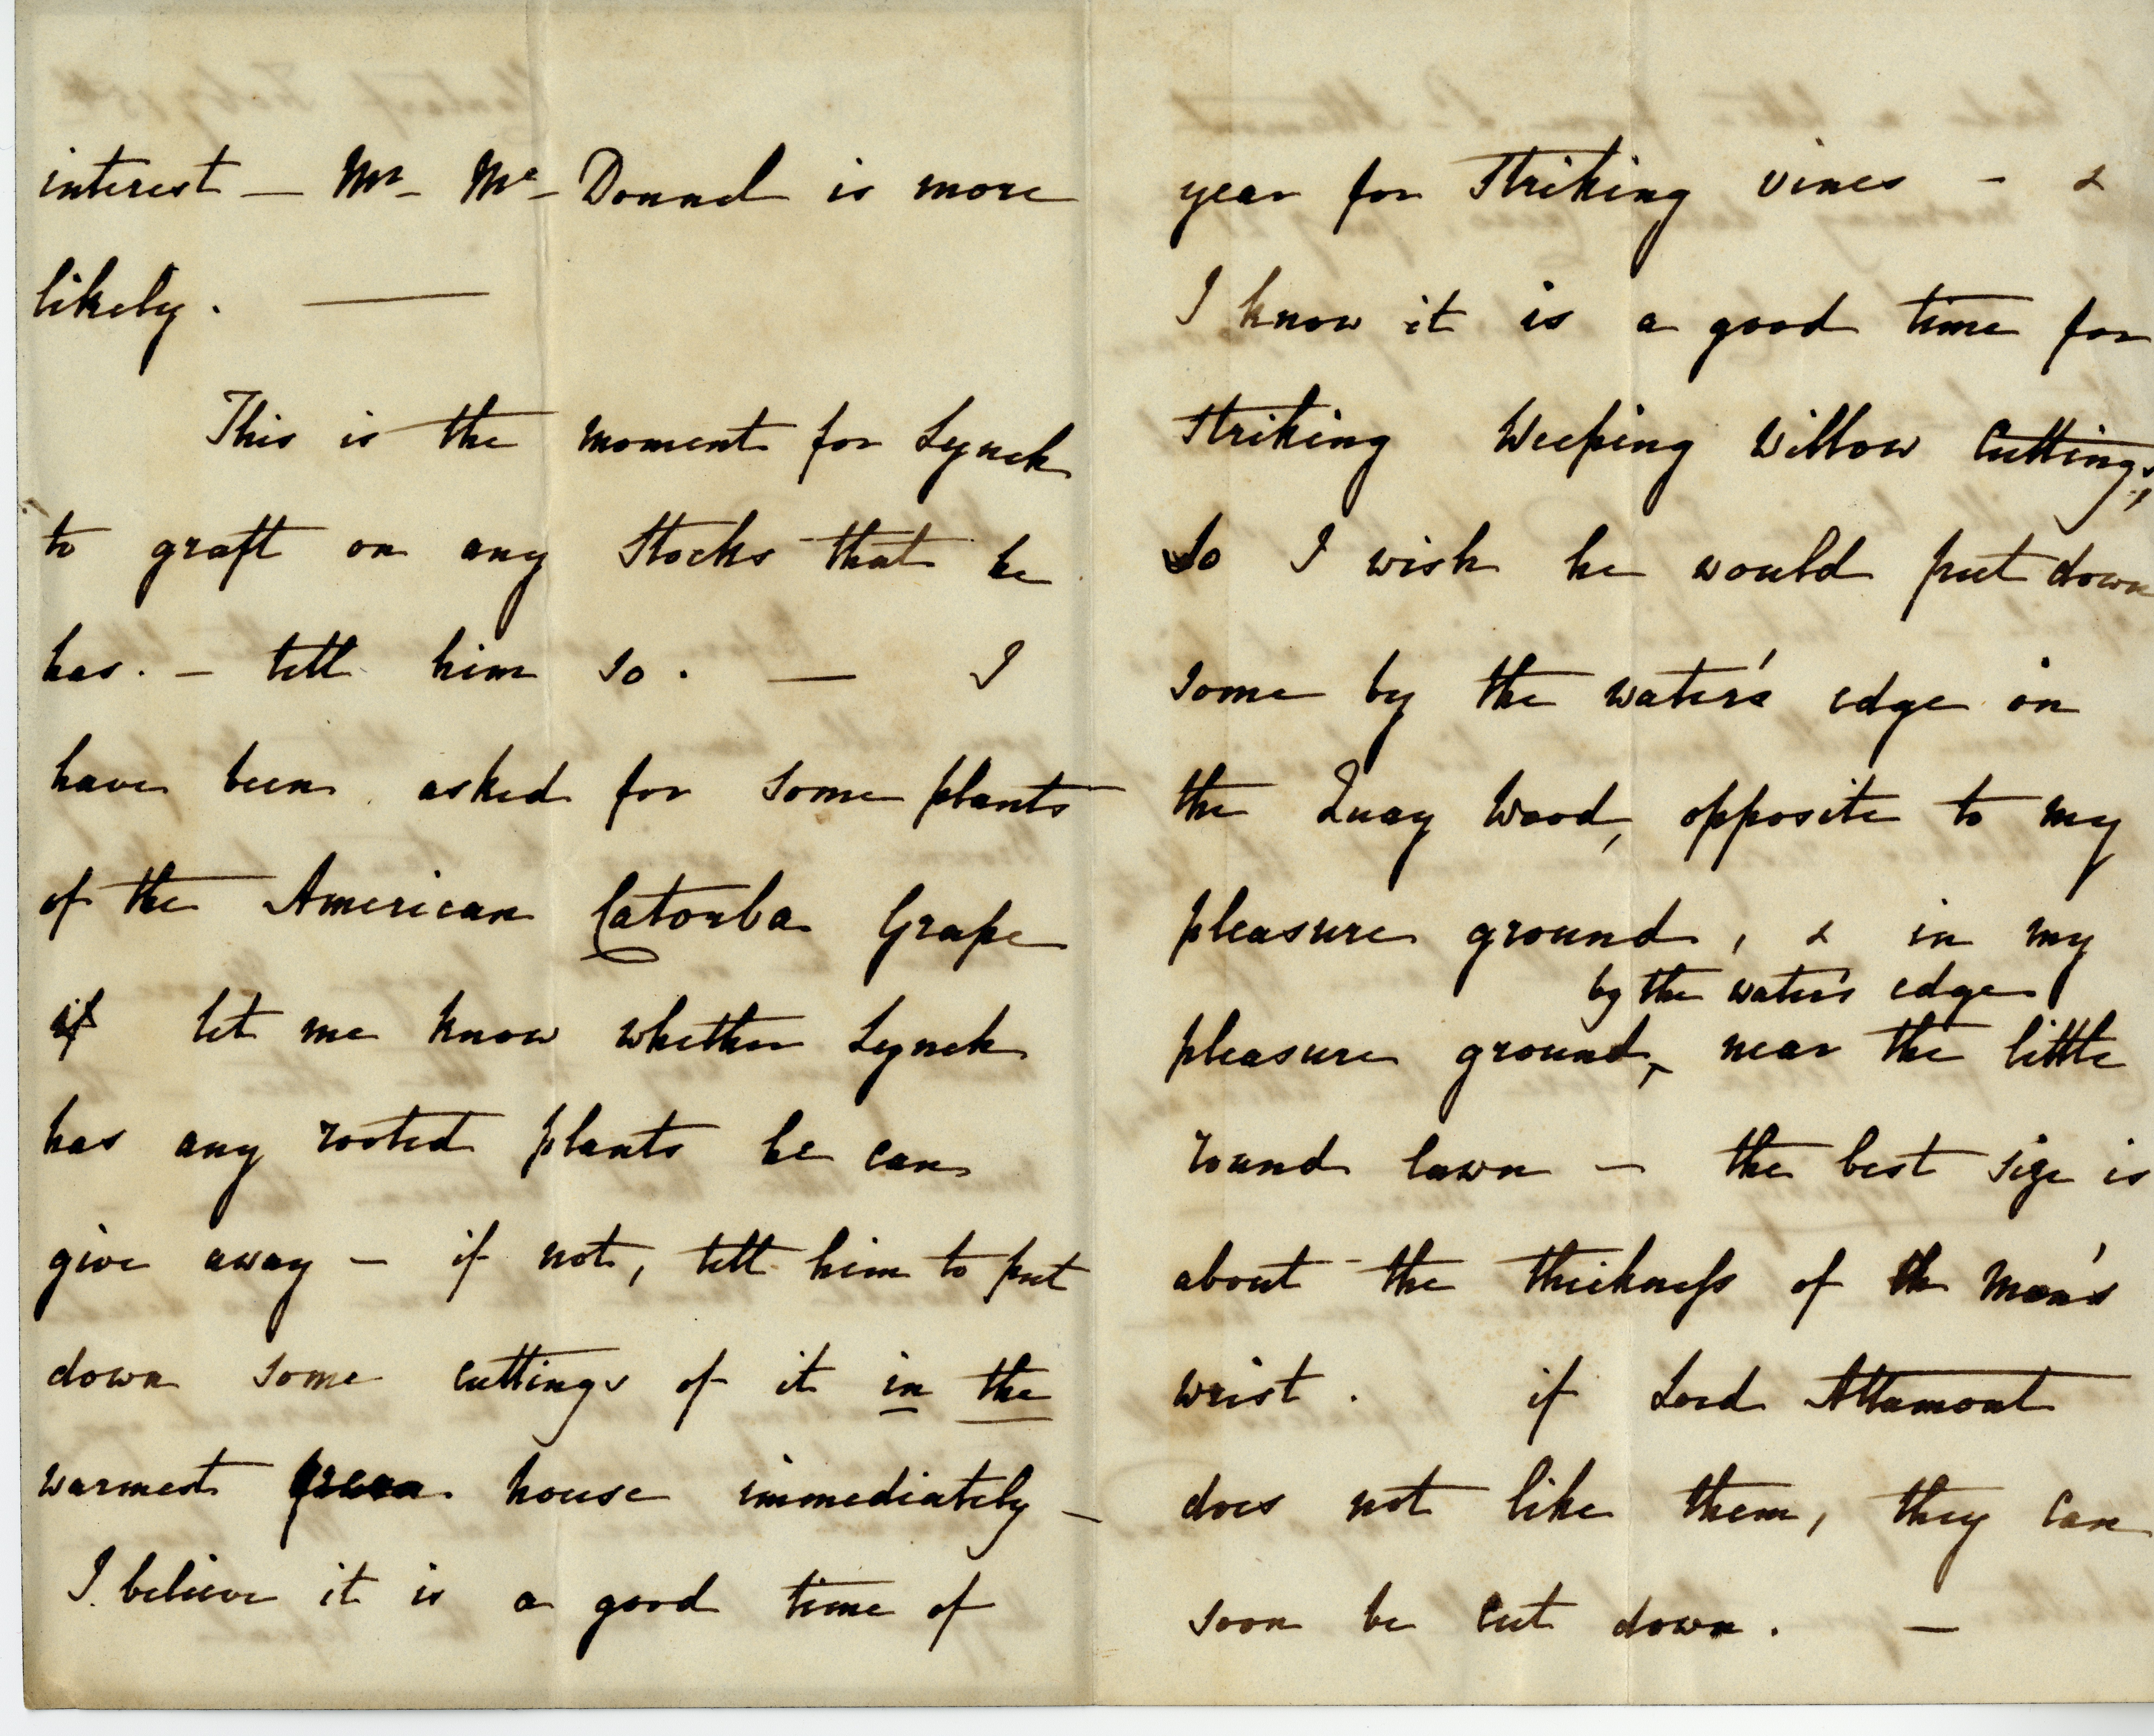 interest — Mr. Mc. Donnel is more
likely. —
This is the moment for Lynch
to graft on any Stocks that he
has. — tell him so. — I
have been asked for some plants
of the American Catowba Grape
if let me know whether Lynch
has any rooted plants he can
give away — if not, tell him to put
down some cuttings of it in the
warmest green house immediately —
I believe it is a good time of
year for Striking vines — &
I know it is a good time for
Striking Weeping Willow Cuttings,
so I wish he would put down
some by the water's edge in
the Quay Wood, opposite to my
pleasure ground, & in my
by the water's edge
pleasure ground, near the little
round lawn — the best size is
about the thickness of th man's
wrist. if Lord Altamont
does not like them, they can
soon be cut down. —